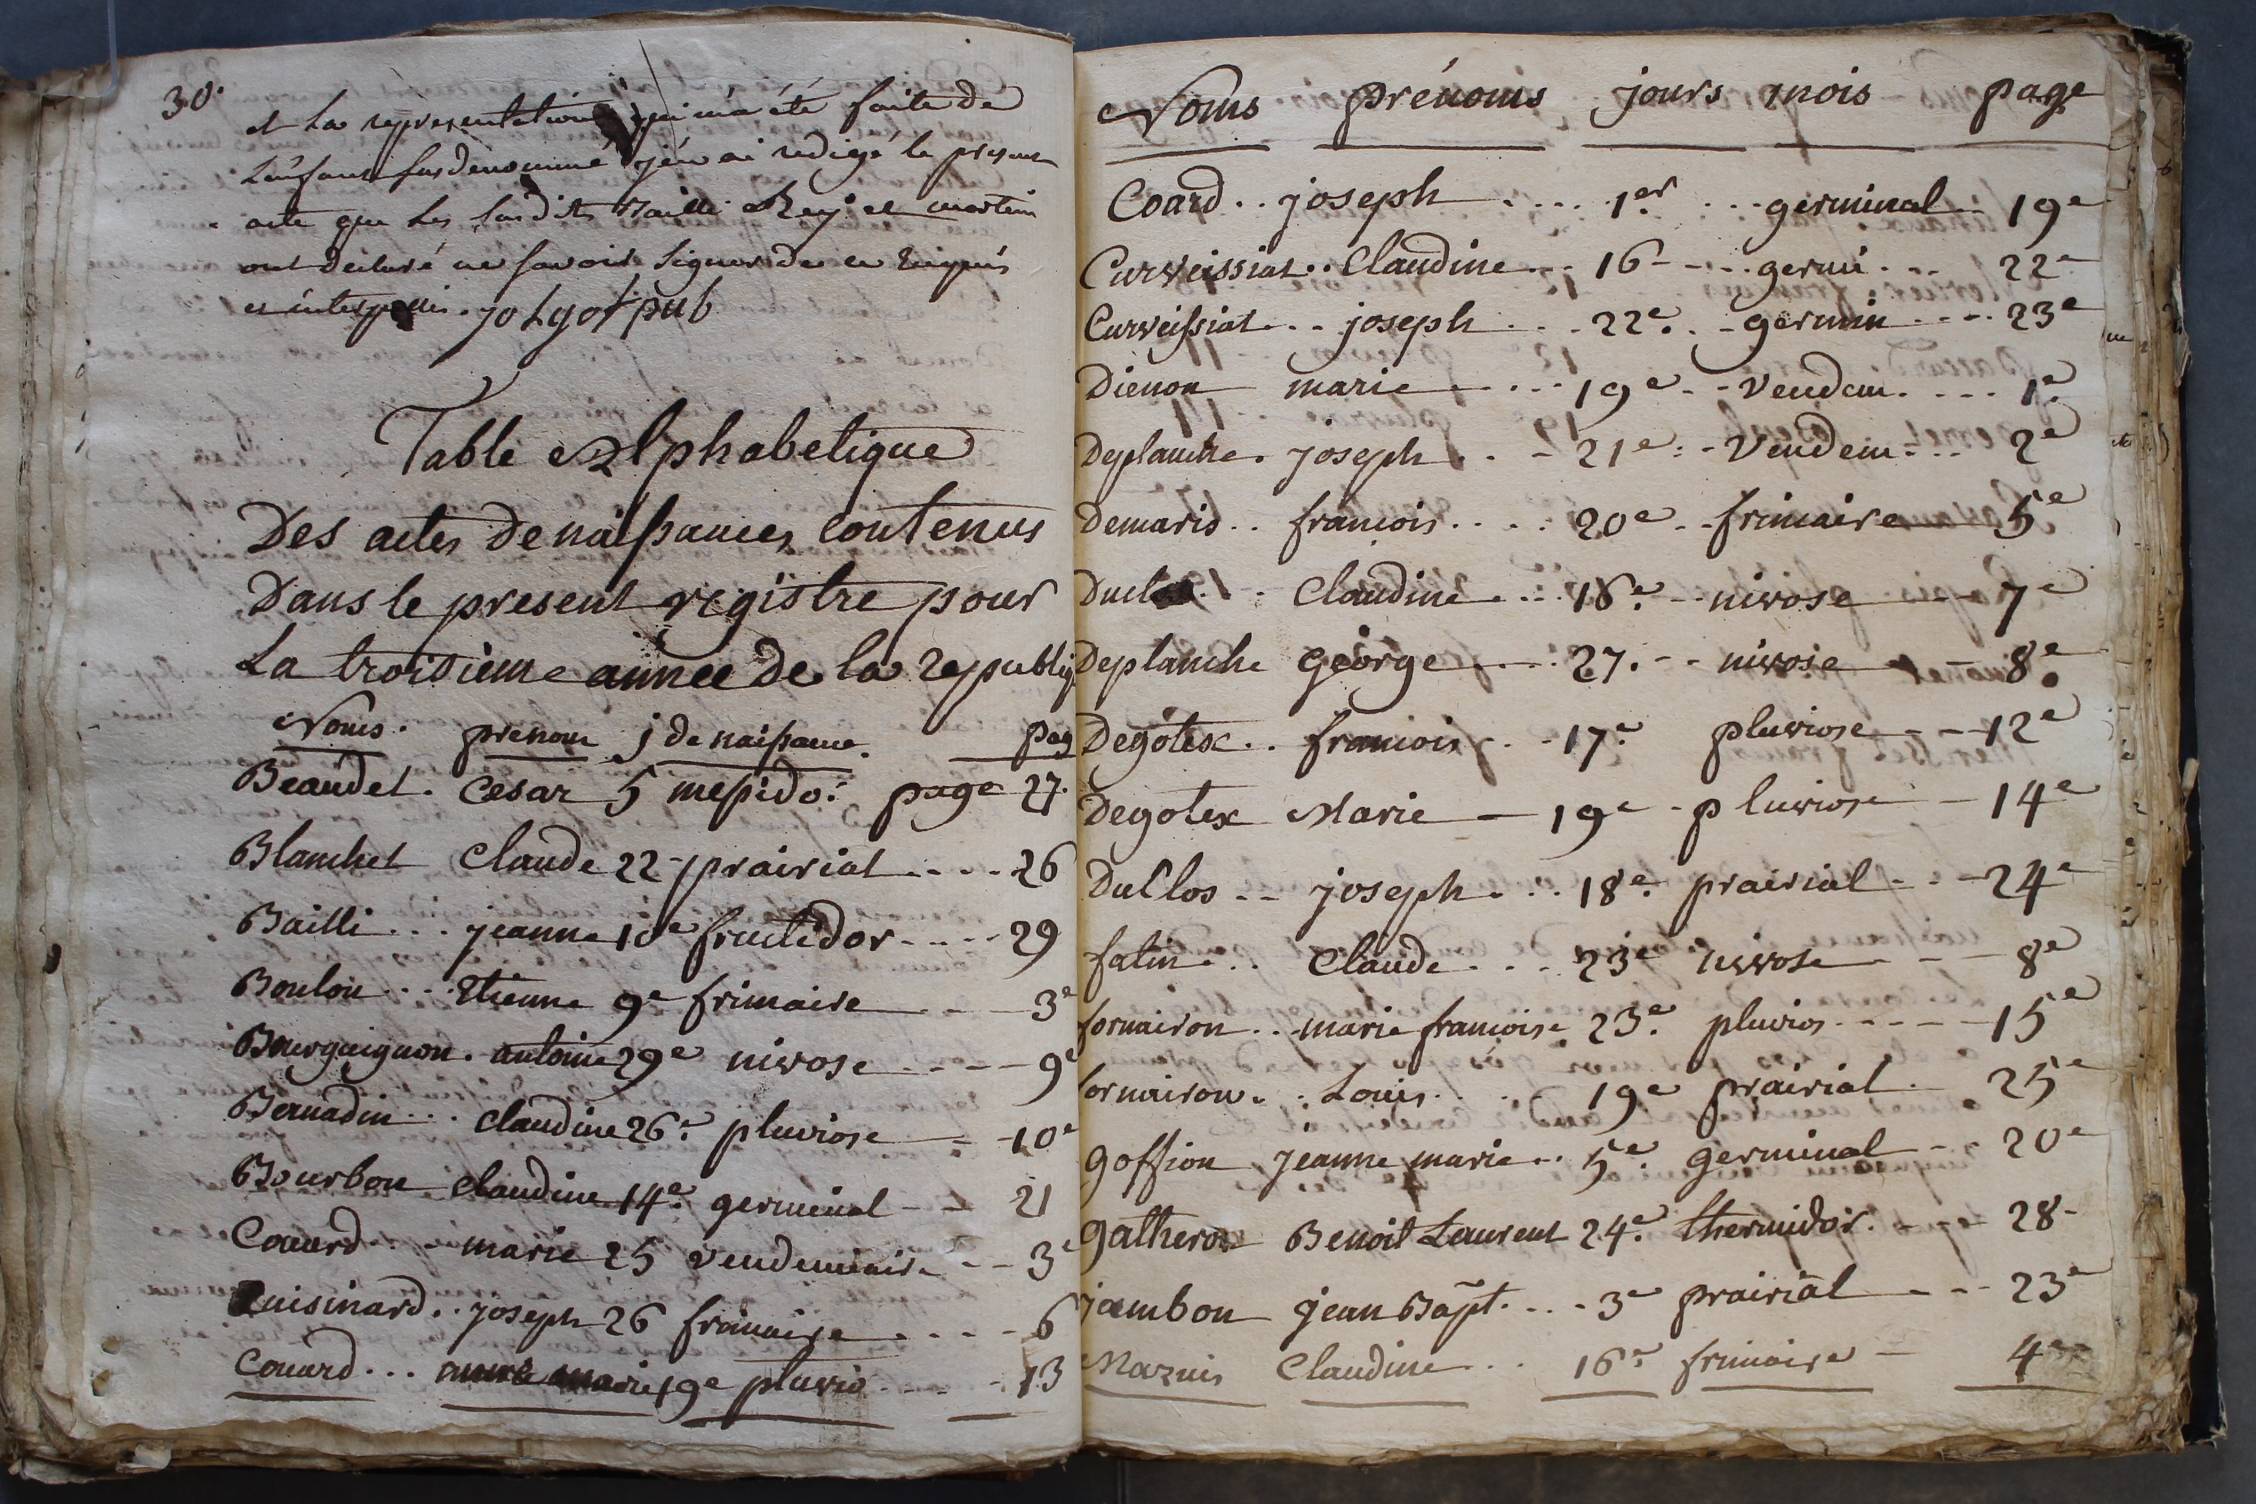 30.
et la representation qui m'a été faite de
L'enfant susdenommé j'en ai redigé le present
acte que Les susdits Bailli Rey et martin
ont declaré ne savoir signer de ce Enquis
et interpellé. jo Lyot pub
Table Alphabetique
Des actes De naissances contenus
Dans le present registre pour
La troisieme année de la republiq
Noms. prenom j de naissance. pag
Beaudet. Cesar 5 messido: page 27.
Blanchet Claude 22 prairial .... 26
Bailli ... jeanne 10e fructidor ..... 29
Boulon ... Etienne 9e frimaire ... 3e
Bourguignon. antoine 29e nivose .... 9e
Bernadin ... Claudine 26e pluviose - 10e
Bourbon claudine 14e germinal -- 21
Couard .. marie 25 vendemiaire -- 3e
Cuisinard .. joseph 26 frimaire .... 6
Couard ... marie 19e pluvio .... 13
Noms prénoms jours mois page
Coard .. joseph .... 1er ... germinal .. 19e
Curveissiat .. Claudine ... 16 ... germi ... 22e
Curveissiat ... joseph ... 22e .. germin .... 23e
Dienon marie .... 19e .. Vendem. .... 1e
Deplanche. joseph .. 21e .. Vendem ... 2e
Demaris .. francois .... 20e .. frimaire 5e
Claudine ... 16e .. nivose -- 7e
Deplanche George ... 27. .. nivose - 8e
Degotex .. francois .. 17e pluviose --- 12e
Degotex Marie - 19e - pluviose - 14e
DuClos -- joseph ... 18e prairial --- 24e
fatin .. Claude ... 23e nivose -- 8e
fornairon .. marie francoise 23e pluvios ----- 15e
fornairon .. Louis .. 19e prairial - 25e
goffion jeanne marie .. 5e germinal -- 20e
gatheron Benoit Laurent 24e thermidor. --- 28
jambon jean Bapt. ... 3e prairial --- 23e
Mazuis Claudine .. 16e frimaire - 4e